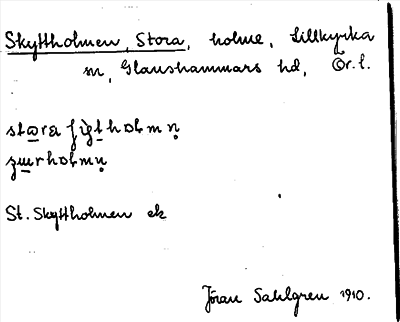 Skyttholmen, Stora, holme, Lillkyrka
sn, Glanshammars hd, Ör. l.
St. Skyttholmen ek
Jöran Sahlgren 1910.